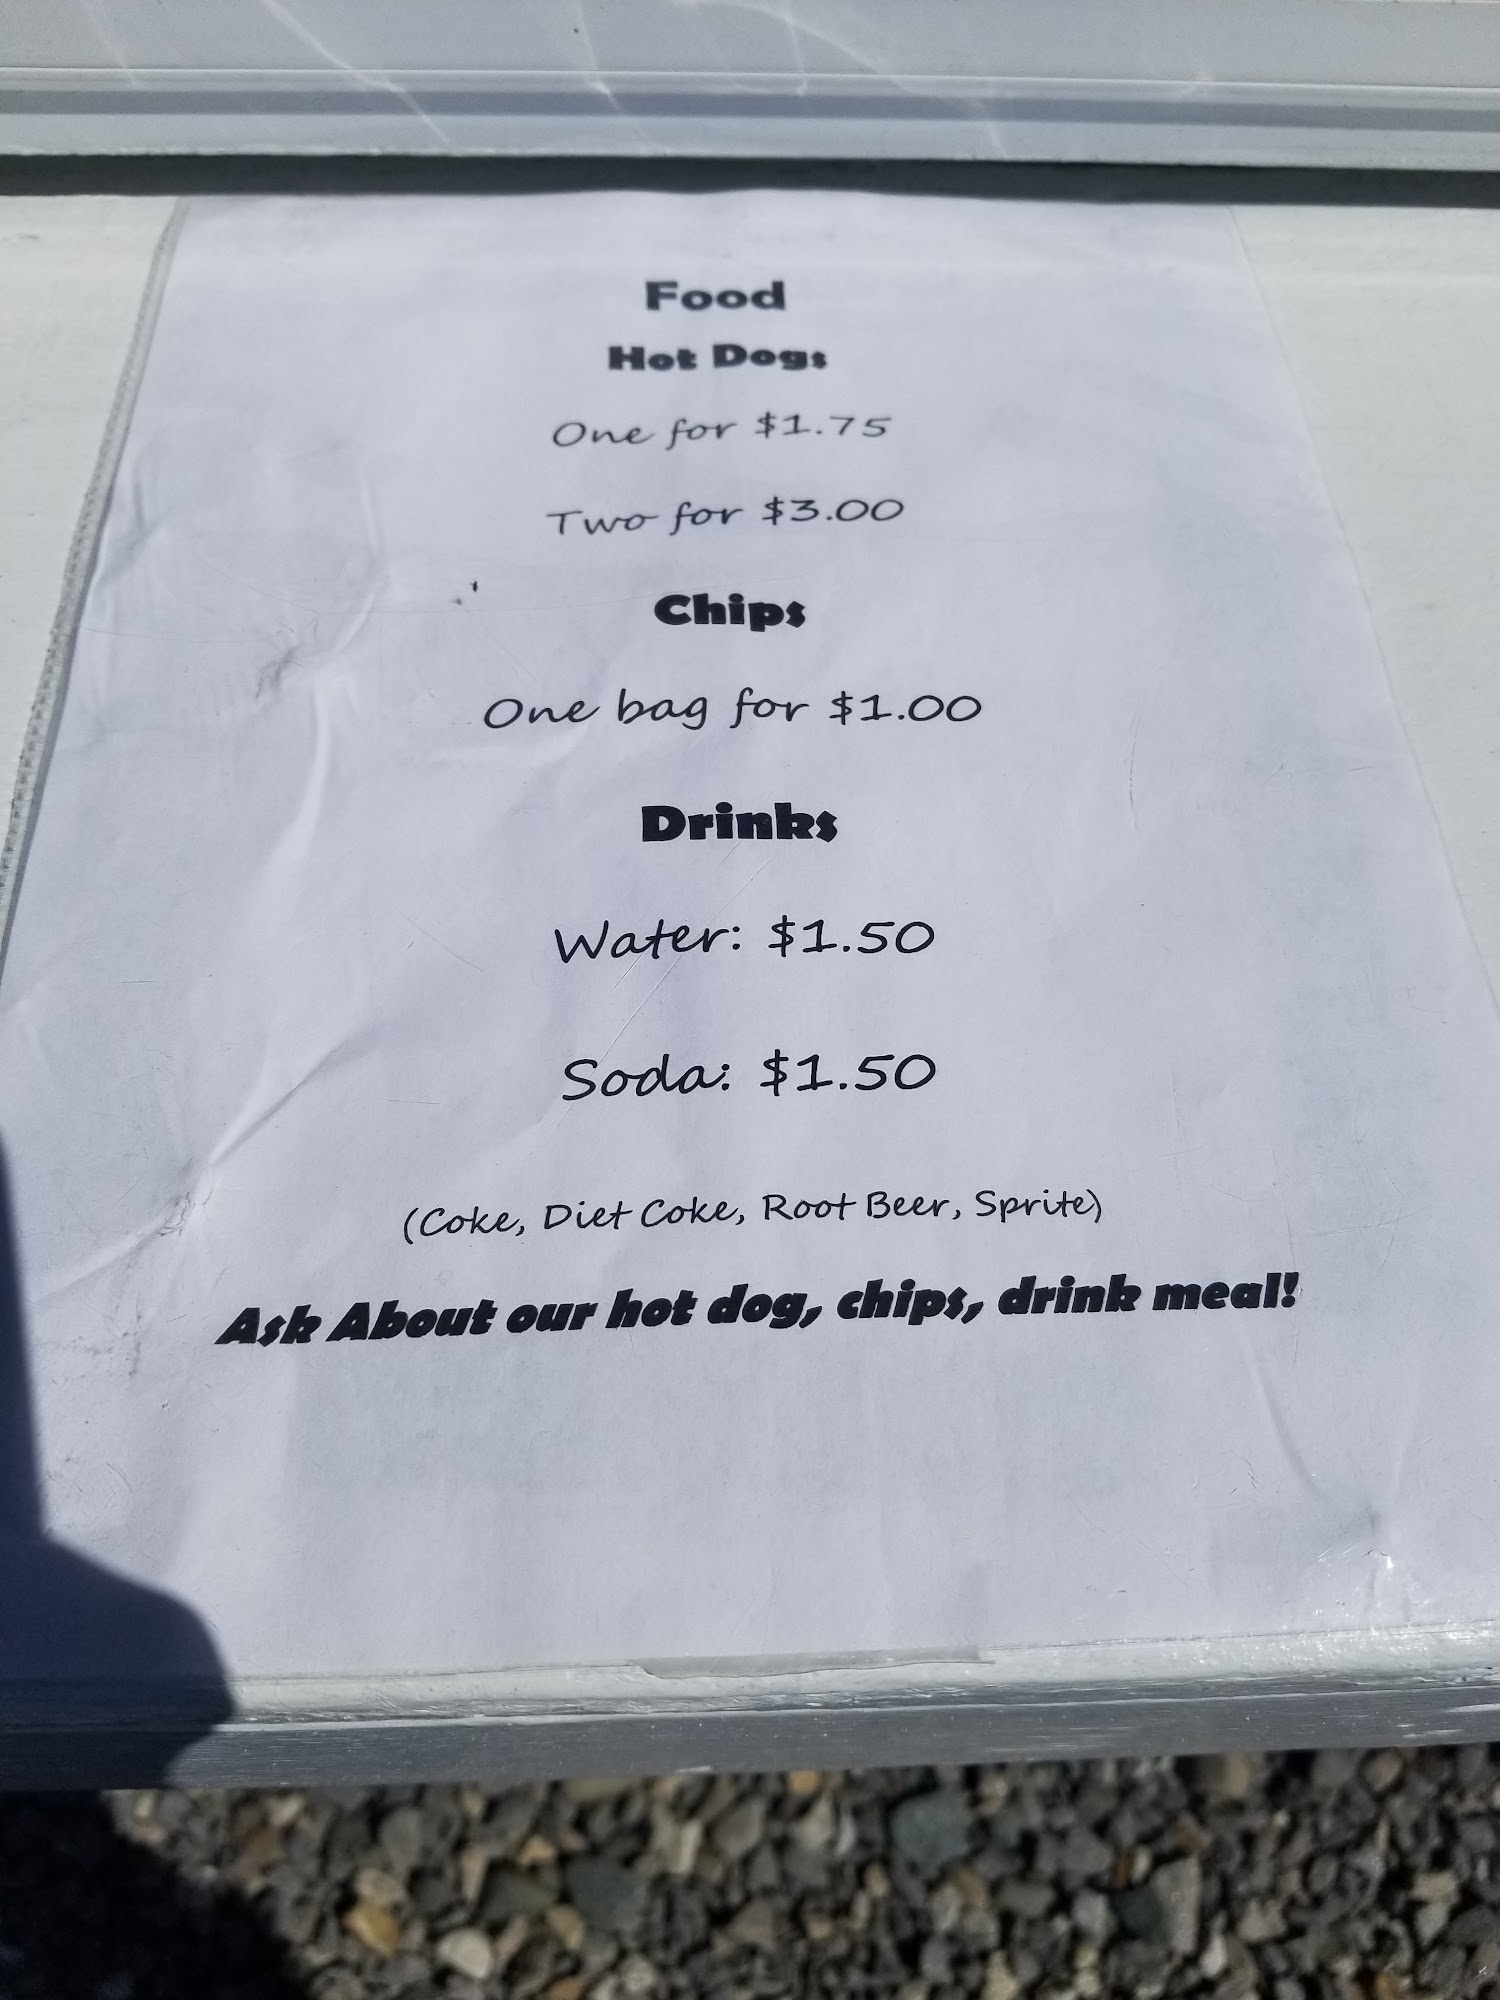 Food
Hot Dogs
One for $1.75
Two for $3.00
Chips
One bag for $1.00
Drinks
Water: $1.50
Soda: $1.50
(Coke, Diet Coke, Root Beer, Sprite)
Ask About our hot dog, chips, drink meal!